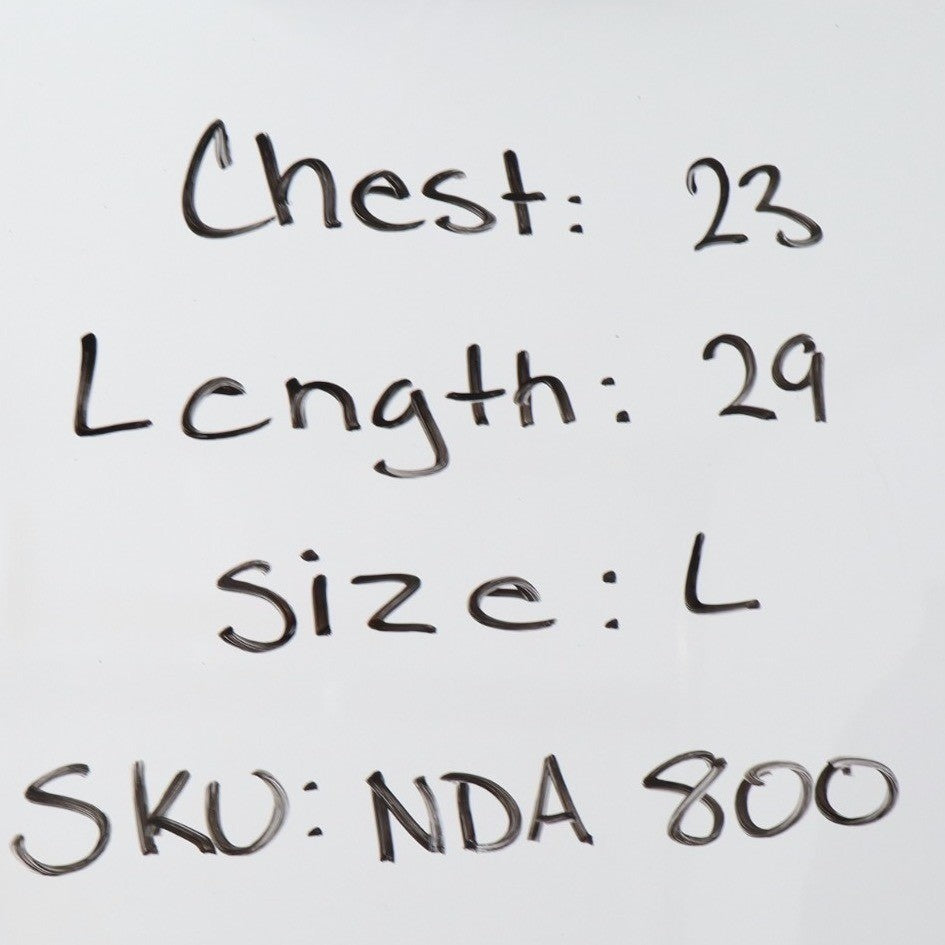 Chest: 23
Length: 29
Size: L
SKU: NDA 800